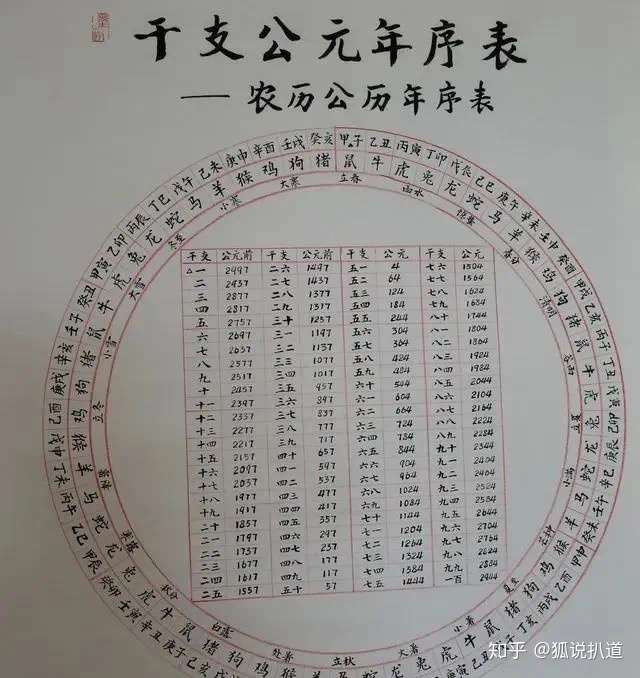 干支公元年序表
—农历公历年序表
甲子 乙丑 丙寅 丁卯 戊辰 己巳 庚午 辛未 壬申 癸酉 甲戌 乙亥 丙子 丁丑 戊寅 己卯 庚辰 辛巳 壬午 癸未 甲申 乙酉 丙戌 丁亥
庚子 辛丑 壬寅 癸卯 甲辰 乙巳 丙午 丁未 戊申 己酉 庚戌 辛亥 壬子 癸丑 甲寅 乙卯 丙辰 丁巳 戊午 己未 庚申 辛酉 壬戌 癸亥
鼠 牛 虎 兔 龙 蛇 马 羊 猴 鸡 狗 猪 鼠 牛 虎 兔 龙 蛇 马 羊 猴 鸡 狗 猪 鼠 牛 虎 兔 龙 蛇
马 羊 猴 鸡 狗 猪 鼠 牛 虎 兔 龙 蛇 马 羊 猴 鸡 狗 猪 鼠 牛 虎 兔 龙 蛇 马 羊 猴 鸡 狗 猪
立春 雨水 惊蛰 春分 清明 谷雨 立夏 小满 芒种 夏至 小暑 大暑 立秋 处暑 白露 秋分 寒露 霜降 立冬 小雪 大雪 冬至 小寒 大寒
干支 公元前 干支 公元前 干支 公元 干支 公元
△一 2997 二六 1497 五一 4 七六 1504
二 2937 二七 1437 五二 64 七七 1564
三 2877 二八 1377 五三 124 七八 1624
四 2817 二九 1317 五四 184 七九 1684
五 2757 三十 1257 五五 244 八十 1744
六 2697 三一 1197 五六 304 八一 1804
七 2637 三二 1137 五七 364 八二 1864
八 2577 三三 1077 五八 424 八三 1924
九 2517 三四 1017 五九 484 八四 1984
十 2457 三五 957 六十 544 八五 2044
十一 2397 三六 897 六一 604 八六 2104
十二 2337 三七 837 六二 664 八七 2164
十三 2277 三八 777 六三 724 八八 2224
十四 2217 三九 717 六四 784 八九 2284
十五 2157 四十 657 六五 844 九十 2344
十六 2097 四一 597 六六 904 九一 2404
十七 2037 四二 537 六七 964 九二 2464
十八 1977 四三 477 六八 1024 九三 2524
十九 1917 四四 417 六九 1084 九四 2584
二十 1857 四五 357 七十 1144 九五 2644
二一 1797 四六 297 七一 1204 九六 2704
二二 1737 四七 237 七二 1264 九七 2764
二三 1677 四八 177 七三 1324 九八 2824
二四 1617 四九 117 七四 1384 九九 2884
二五 1557 五十 57 七五 1444 一百 2944
知乎 @狐说扒道